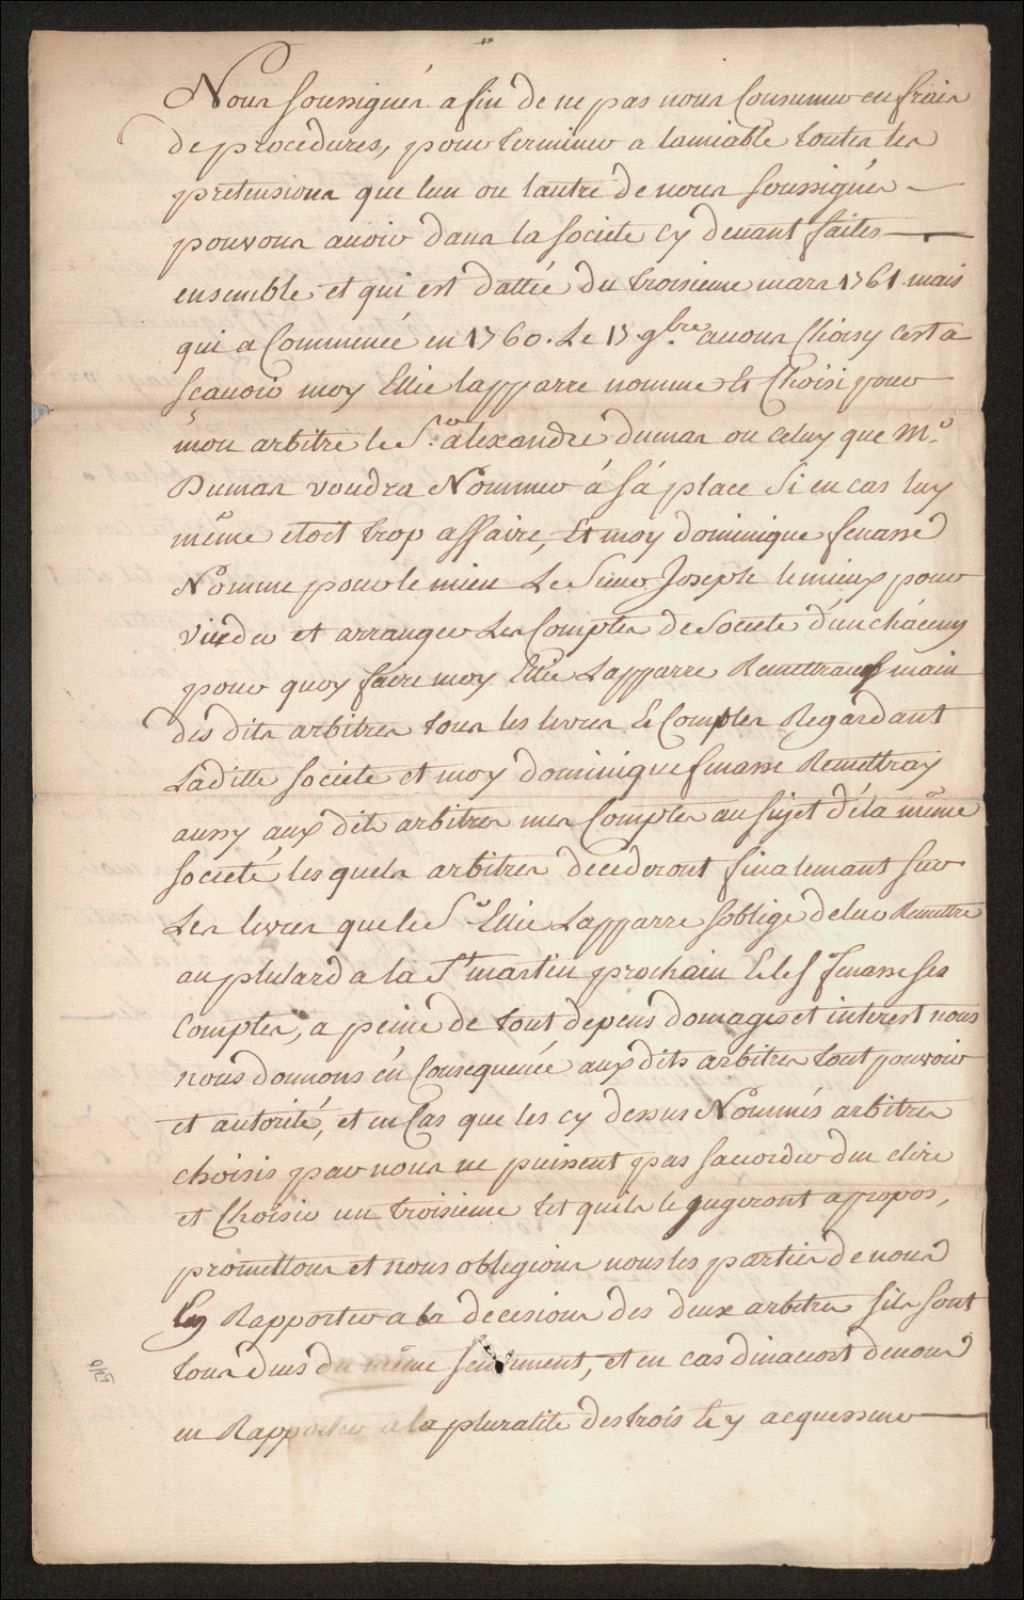 Nous soussignés afin de ne pas nous Consumer en frais
de procedures, pour terminer a lamiable toutes les
pretensions que lun ou lautre de nous soussignés
pouvons avoir dans la societe cy devant faites
ensemble et qui est dattée du troisieme mars 1761 mais
qui a Commencé en 1760. Le 15 9bre avons Choisy cest a
scavoir moy Ellie lapparre nomme Et Choisi pour
mon arbitre le Sr alexandre dumas ou celuy que Mr
Dumas voudra Nommer á sá place Si en cas luy
même etoit trop affaire, Et moy dominique senasse
Nomme pour le mien Le Sieur Joseph lemieux pour
vuider et arranger Les Comptes de Societe d'un chácuny
pour quoy faire moy Ellie Lapparre Remettrai main
des dits arbitres tous les livres & Comptes Regardant
Laditte societe et moy dominique senasse Remettray
aussy aux dits arbitres mes Comptes au sujet déla même
societé, les quels arbitres decederont finalemant sur
Les livres que le Sr Ellie Lapparre soblige de leur Remettre
au plutard a la St martin prochain & le Sr senasse ses
Comptes, a peine de tout depens domages et interest nous
nous donnons én Consequence aux dits arbitres tout pouvoir
et autorité, et en Cas que les cy dessus Nommés arbitres
choisis par nous ne puissent pas sacorder den elire
et Choisir un troisieme tel quils le jugeront apropos,
promettons et nous obligions nous les parties de nous
En Rapporter a la decesions des deux arbitres sils sont
tous deus du même sentiment, et en cas dinacort de nous
en Rapporter a la pluralite des trois & y acquesser